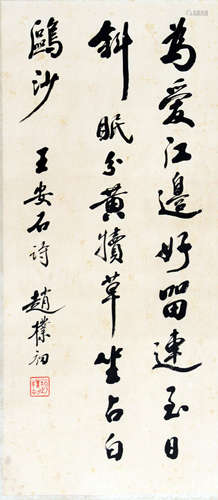 為愛江邊好留連至日
斜眠分黃犢草坐占白
鷗沙 王安石詩 趙樸初